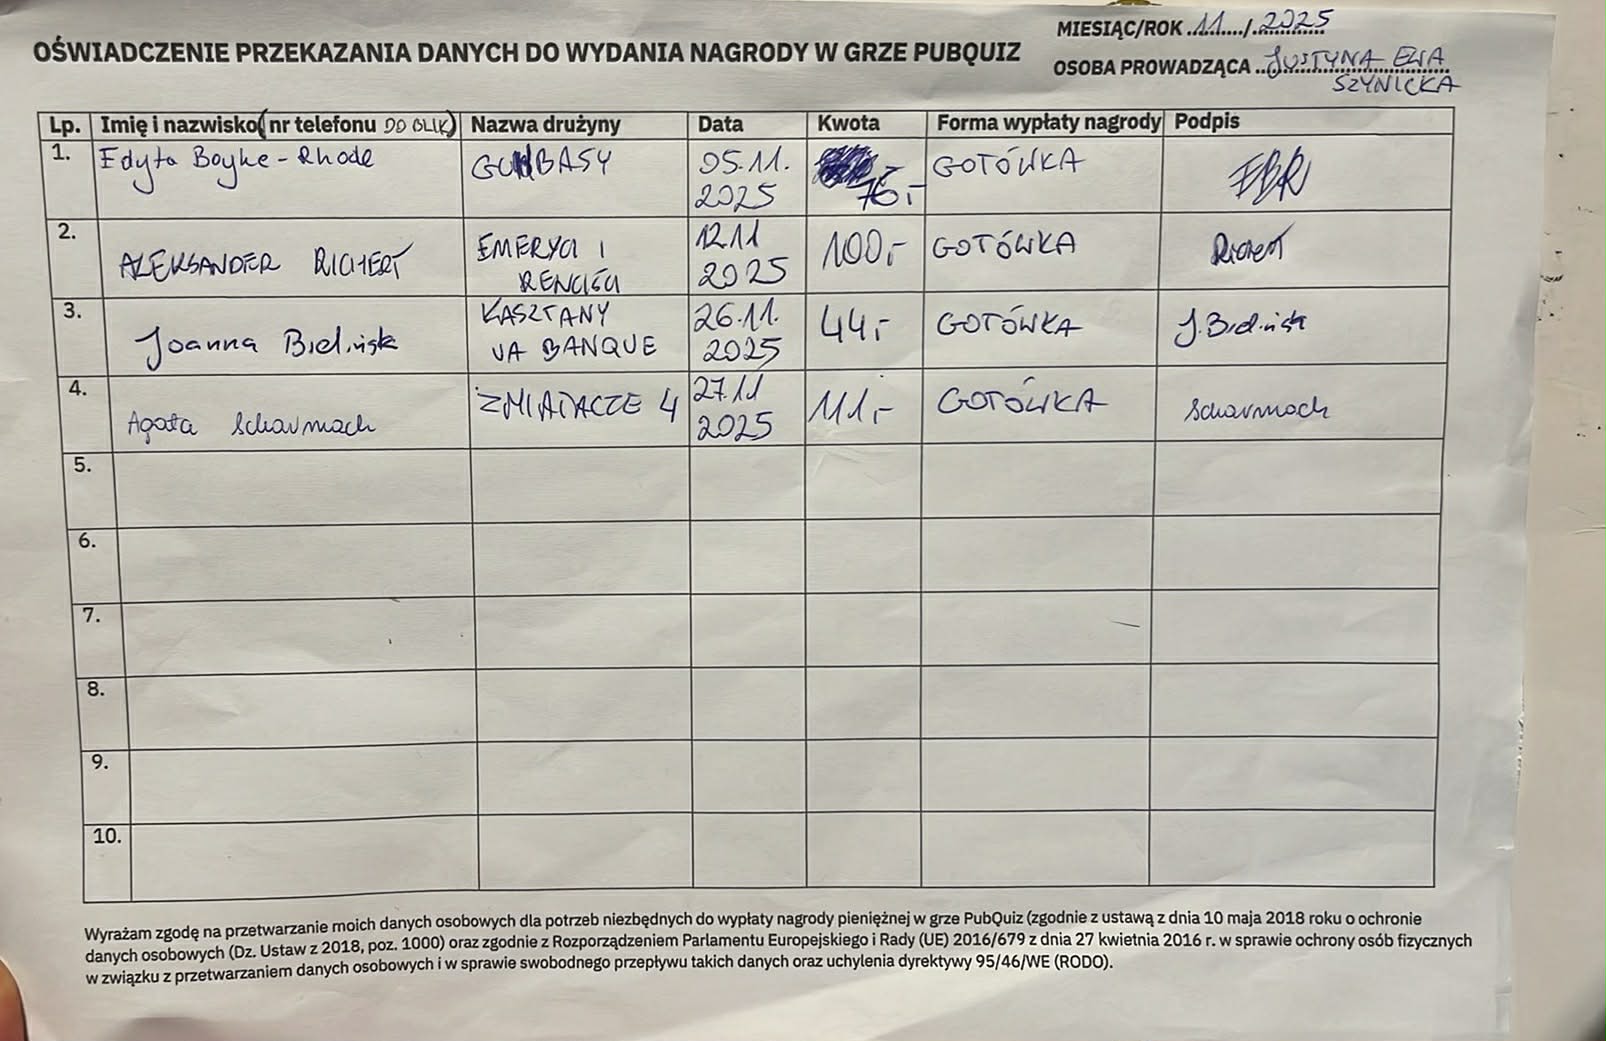 MIESIĄC/ROK 11 / 2025
OŚWIADCZENIE PRZEKAZANIA DANYCH DO WYDANIA NAGRODY W GRZE PUBQUIZ
OSOBA PROWADZĄCA JUSTYNA EWA
SZYNICKA
Lp. Imię i nazwisko (nr telefonu DO BLIK) Nazwa drużyny Data Kwota Forma wypłaty nagrody Podpis
1. Edyta Boyke-Rhode 05.11. 2025 76,- GOTÓWKA EBR
2. ALEKSANDER RICHERT EMERYCI I RENCIŚCI 12.11 2025 100,- GOTÓWKA Richert
3. Joanna KASZTANY VA BANQUE 26.11. 2025 44,- GOTÓWKA J.
4. Agata Scharmach ZMIATACZE 4 27.11 2025 111,- GOTÓWKA Scharmach
5.
6.
7.
8.
9.
10.
Wyrażam zgodę na przetwarzanie moich danych osobowych dla potrzeb niezbędnych do wypłaty nagrody pieniężnej w grze PubQuiz (zgodnie z ustawą z dnia 10 maja 2018 roku o ochronie
danych osobowych (Dz. Ustaw z 2018, poz. 1000) oraz zgodnie z Rozporządzeniem Parlamentu Europejskiego i Rady (UE) 2016/679 z dnia 27 kwietnia 2016 r. w sprawie ochrony osób fizycznych
w związku z przetwarzaniem danych osobowych i w sprawie swobodnego przepływu takich danych oraz uchylenia dyrektywy 95/46/WE (RODO).